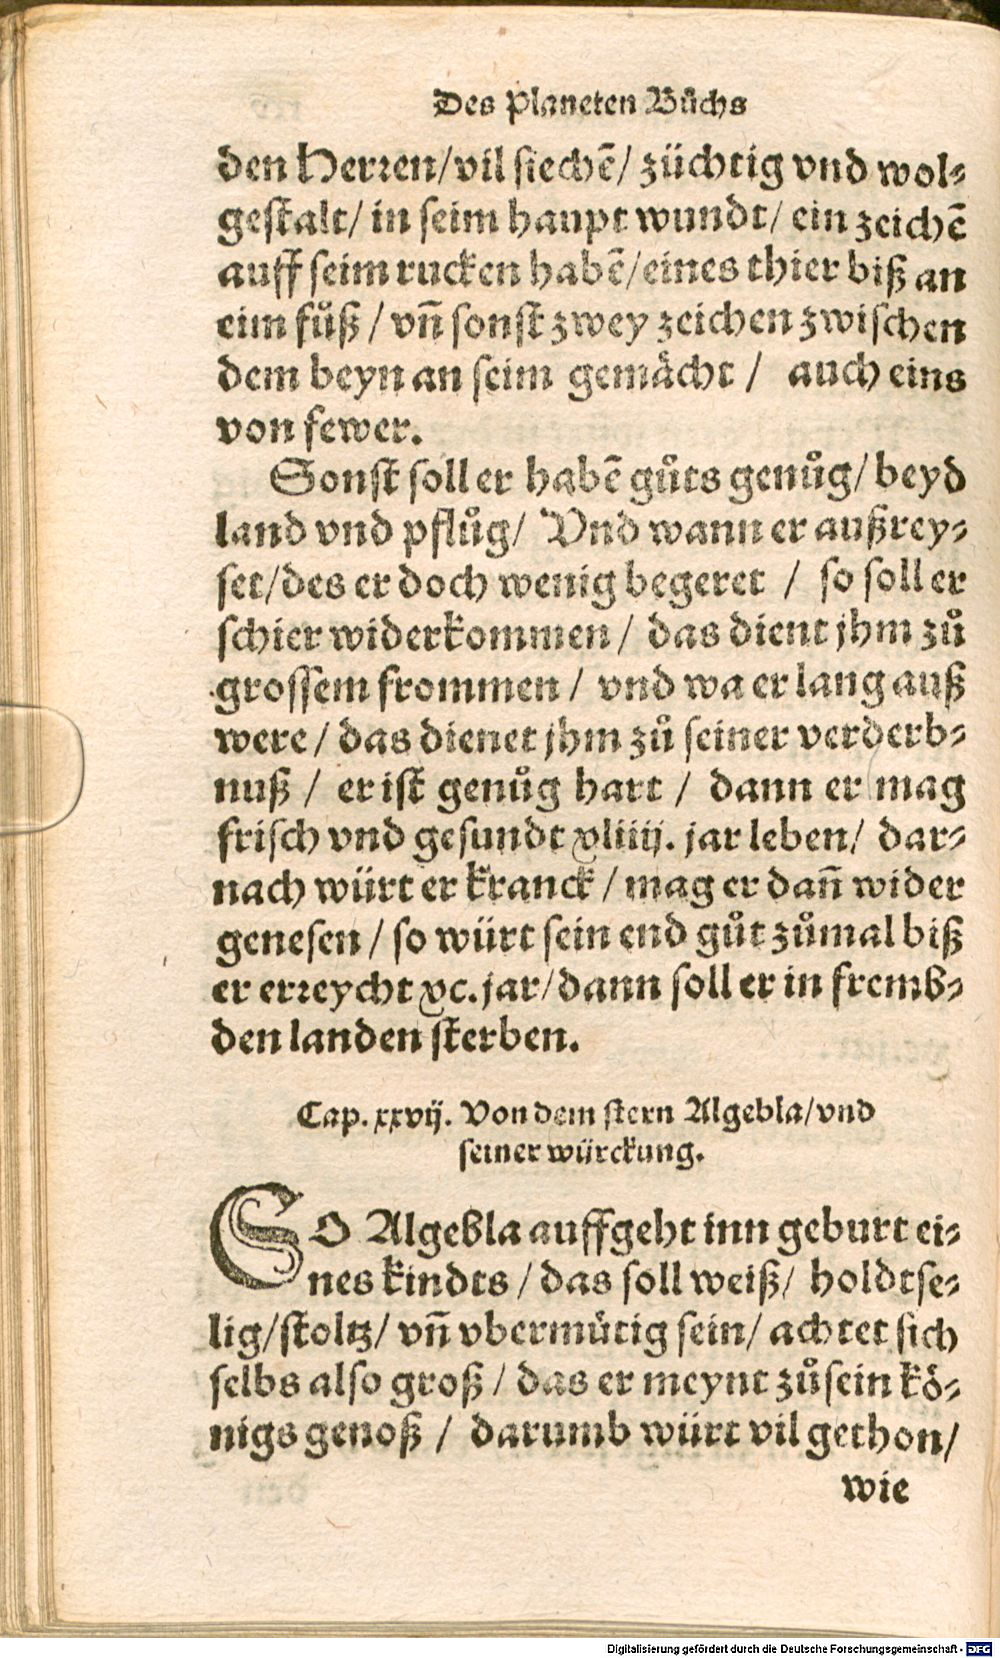 Des Planeten Bůchs
den Herꝛen/vil siechē/ züchtig vnd wol⸗
gestalt/ in seim haupt wundt/ ein zeichē
auff seim rucken habē/eines thier biß an
eim fůß / vn̄ sonst zwey zeichen zwischen
dem beyn an seim gemächt / auch eins
von fewer.
Sonst soll er habē gůts genůg/ beyd
land vnd pflůg/ Vnd wann er außrey⸗
set/des er doch wenig begeret / so soll er
schier widerkommen / das dient jhm zů
grossem frommen / vnd wa er lang auß
were / das dienet jhm zů seiner verderb⸗
nuß / er ist genůg hart / dann er mag
frisch vnd gesundt xliiij. jar leben/ dar⸗
nach würt er kranck / mag er dan̄ wider
genesen / so würt sein end gůt zůmal biß
er erꝛeycht xc. jar/dann soll er in fremb⸗
den landen sterben.
Cap. xxvij. Von dem stern Algebla/vnd
seiner würckung.
SO Algebla auffgeht inn geburt ei⸗
nes kindts / das soll weiß/ holdtse⸗
lig/stoltz/ vn̄ vbermůtig sein/ achtet sich
selbs also groß / das er meynt zůsein kö⸗
nigs genoß / darumb würt vil gethon/
wie
Digitalisierung gefördert durch die Deutsche Forschungsgemeinschaft - DFG